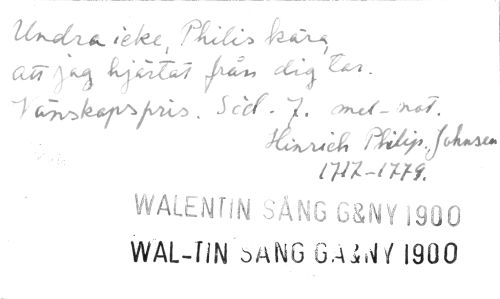 Undra icke, Philis kära,
att jag hjärtat från dig tar.
Vänskapspris. Sid. 7. mel-not.
Hinrich Philip. Johnsen
1717-1779.
WALENTIN SÅNG G&NY 1900
WAL-TIN SANG GA&NY 1900